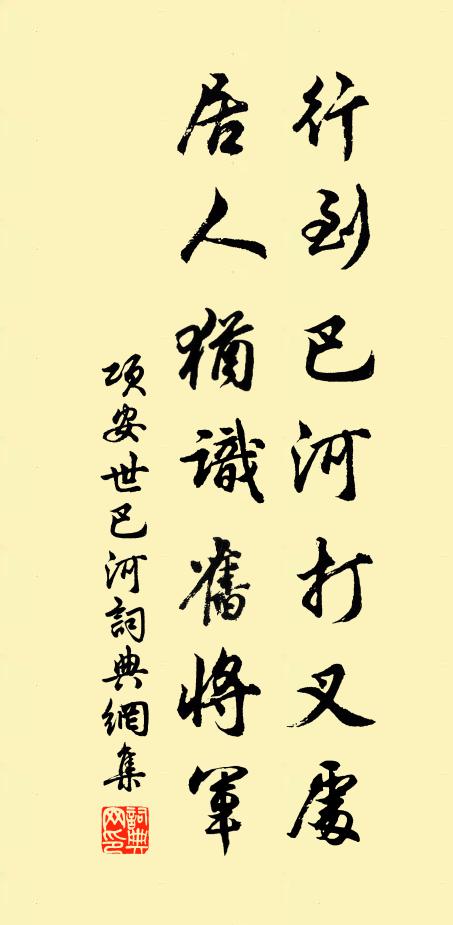 行到巴河打叉處
居人猶識舊將軍
項安世巴河詞典網集
詞典網印